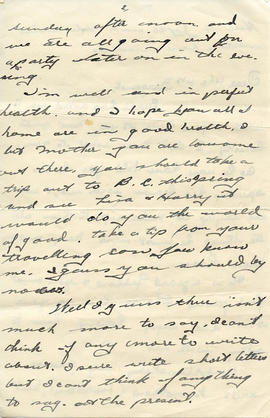 2
sunday after noon and
we are all going out for
a party later on in the eve-
ning
I'm well and in perfect
health. and I hope you all at
home are in good health,
but Mother you are lonesome
out there, you should take a
trip out to B.C. this spring
and see & Harry it
would do you the world
of good. take a tip from your
travelling son, you know
me. I guess you should by
now.
Well I guess there isn't
much more to say. I cant
think of any more to write
about. I sure write short letters
but I cant think of anything
to say. at the present.